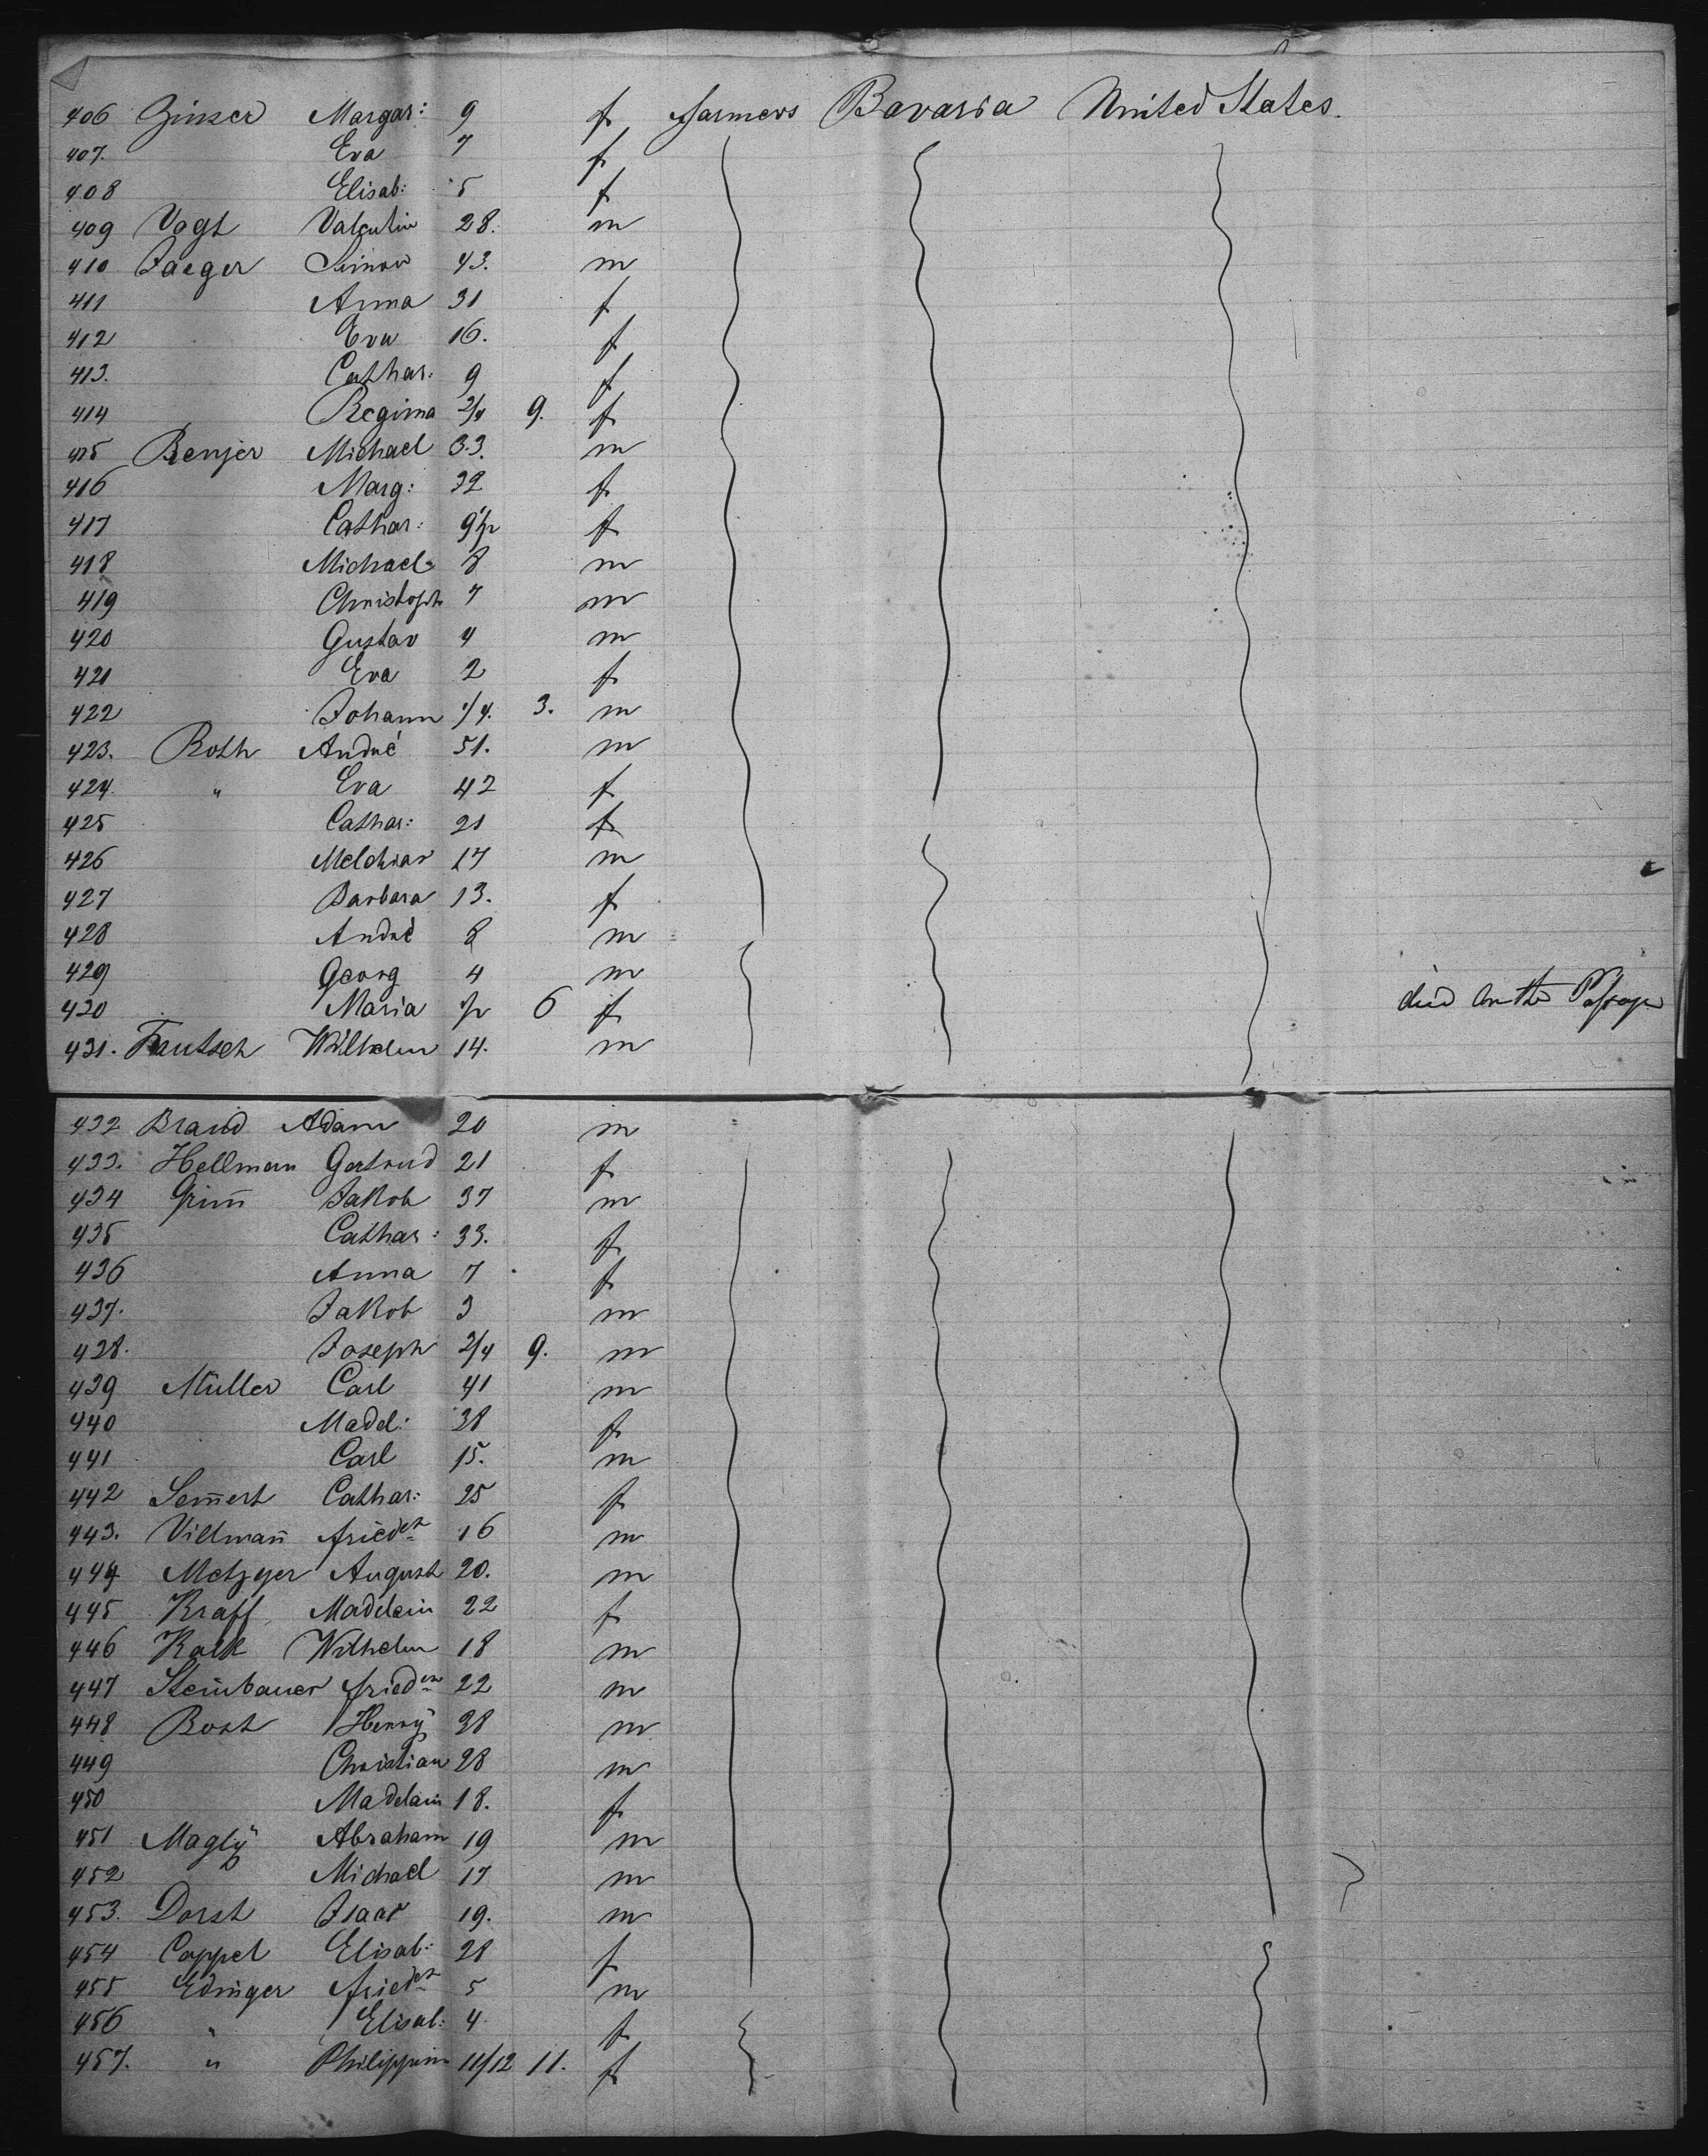 406 Zinser Margar: 9 f farmers Bavaria United States.
407. Eva 7 f
408 Elisab: 5 f
409 Vogt Valentin 28. m
410 Jaeger Simon 43. m
411 Anna 31 f
412 Eva 16. f
413. Cathar: 9 f
414 Regina 3/4 9. f
415 Benjer Michael 33. m
416 Marg: 32 f
417 Cathar: 9 1/2 f
418 Michael 8 m
419 Christoph 7 m
420 Gustav 4 m
421 Eva 2 f
422 Johann 1/4. 3. m
423. Roth André 51. m
424. " Eva 42 f
425 Cathar: 21 f
426 Melchior 17 m
427 Barbara 13. f
428 André 8 m
429 Georg 4 m
430 Maria 1/2 6 f died on the Passage
431. Trautsch Wilhelm 14. m
432 Brand Adam 20 m
433. Hellman Gertrud 21 f
434 Grim̄ Jakob 37 m
435 Cathar: 33. f
436 Anna 7 f
437. Jakob 3 m
438. Joseph 3/4 9. m
439 Müller Carl 41 m
440 Madel: 38 f
441 Carl 15. m
442 Sem̄ert Cathar: 25 f
443. Villman̄ Friedch 16 m
444 Metzger August 20. m
445 Kraff Madelain 22 f
446 Kalk Wilhelm 18 m
447 Steinbauer Friedch 22 m
448 Bost Henrÿ 28 m
449 Christian 28 m
450 Madelain 18. f
451 Maglÿ Abraham 19 m
452 Michael 17 m
453. Dorst Isaac 19. m
454 Cappel Elisab: 28 f
455 Edinger Friedch 5 m
456 " Elisab: 4. f
457. " Philippin 11/12 11. f